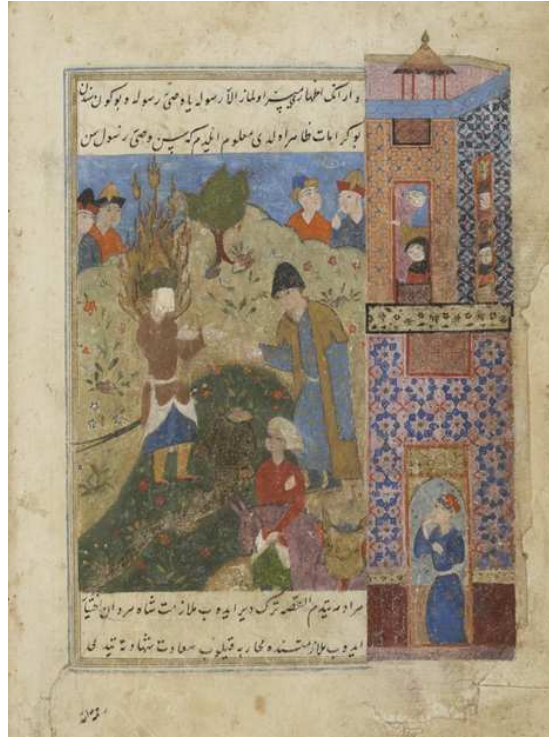 انك اظهاری میسر اولماز الا رسوله یا وصی رسوله و بو کون سندن
بو کرامات ظاهر اولدی معلوم ایلدم که سن وصی رسول سن
مراده یتدم القصه ترک دیر ایدوب ملازمت شاه مردان اختیار
ایدوب ملازمتنده محاربه قیلوب سعادت شهادته یتدی